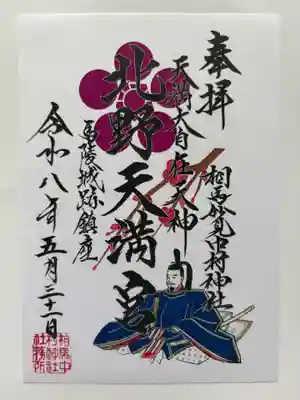 奉拝
相馬総鎮守中村神社
天満大自在天神
北野天満宮
馬陵城跡鎮座
令和八年五月三十一日
相馬中
村神社
社務所